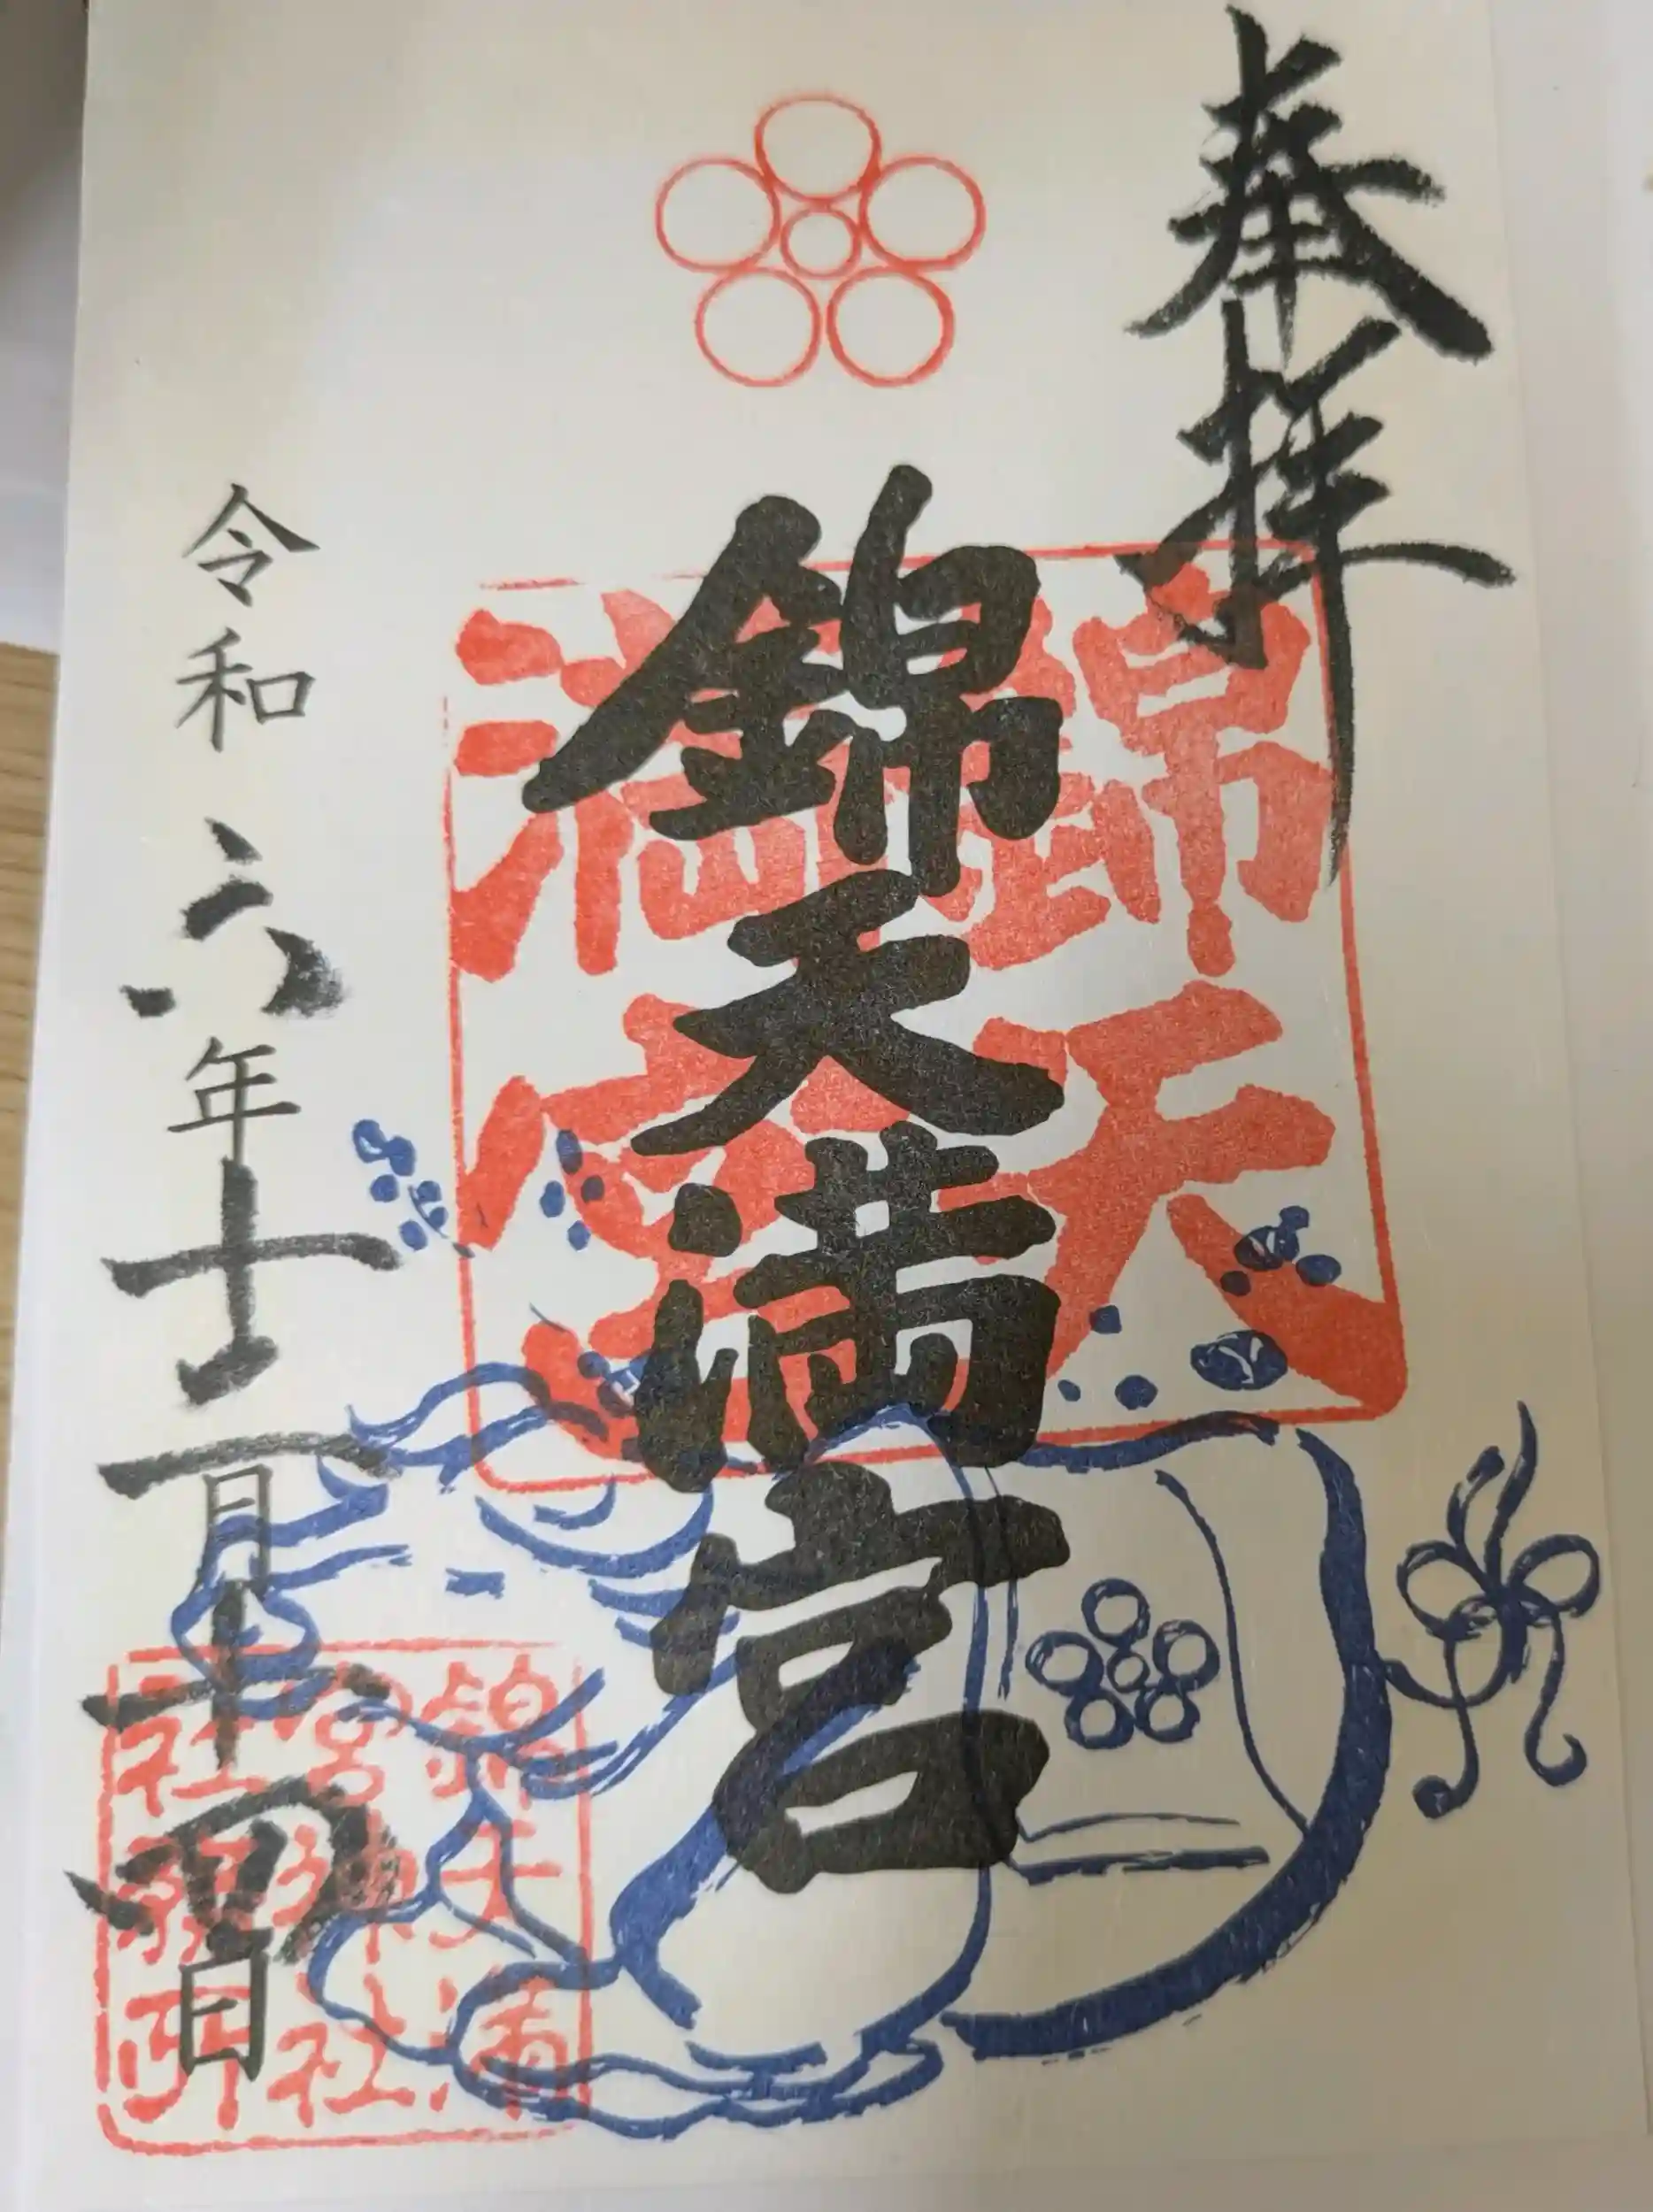 奉拝
錦天満宮
錦天
満宮
令和六年十二月十四日
錦天満
宮神社
社務所